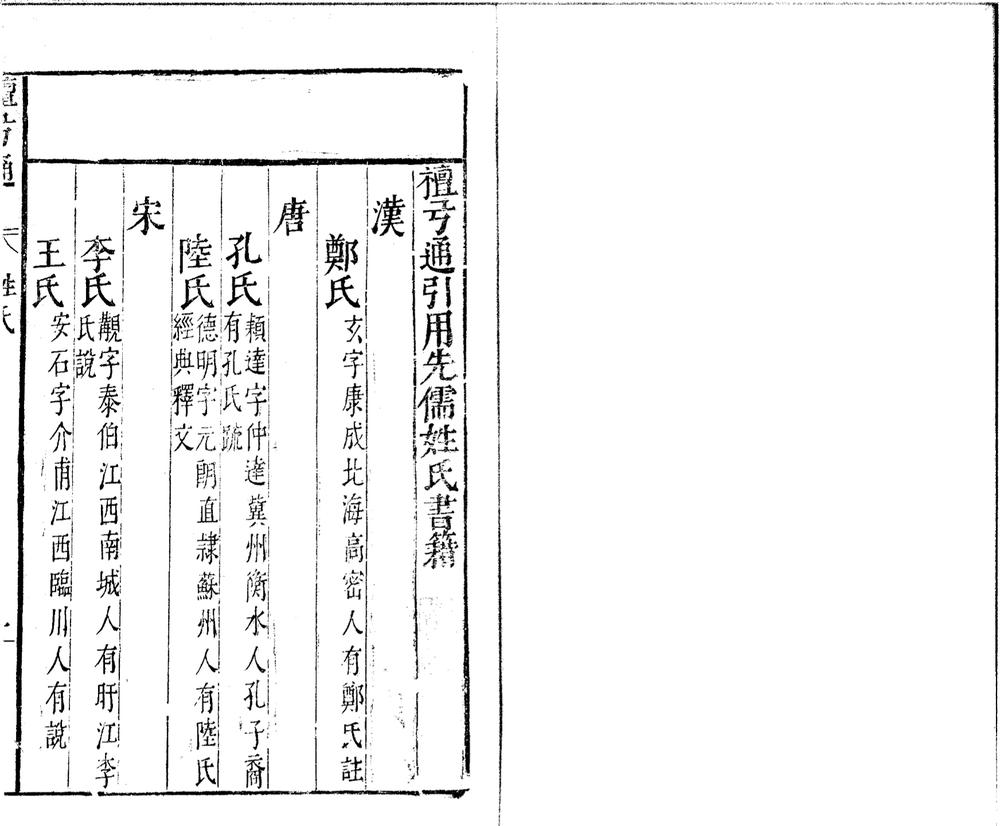 檀弓通引用先儒姓氏書籍
漢
鄭氏玄字康成北海高密人有鄭氏註
唐
孔氏穎達字仲達冀州衡水人孔子裔
有孔氏疏
陸氏德明字元朗直隸蘇州人有陸氏
經典釋文
宋
李氏觀字泰伯江西南城人有盱江李
氏說
王氏安石字介甫江西臨川人有說
檀弓通 姓氏